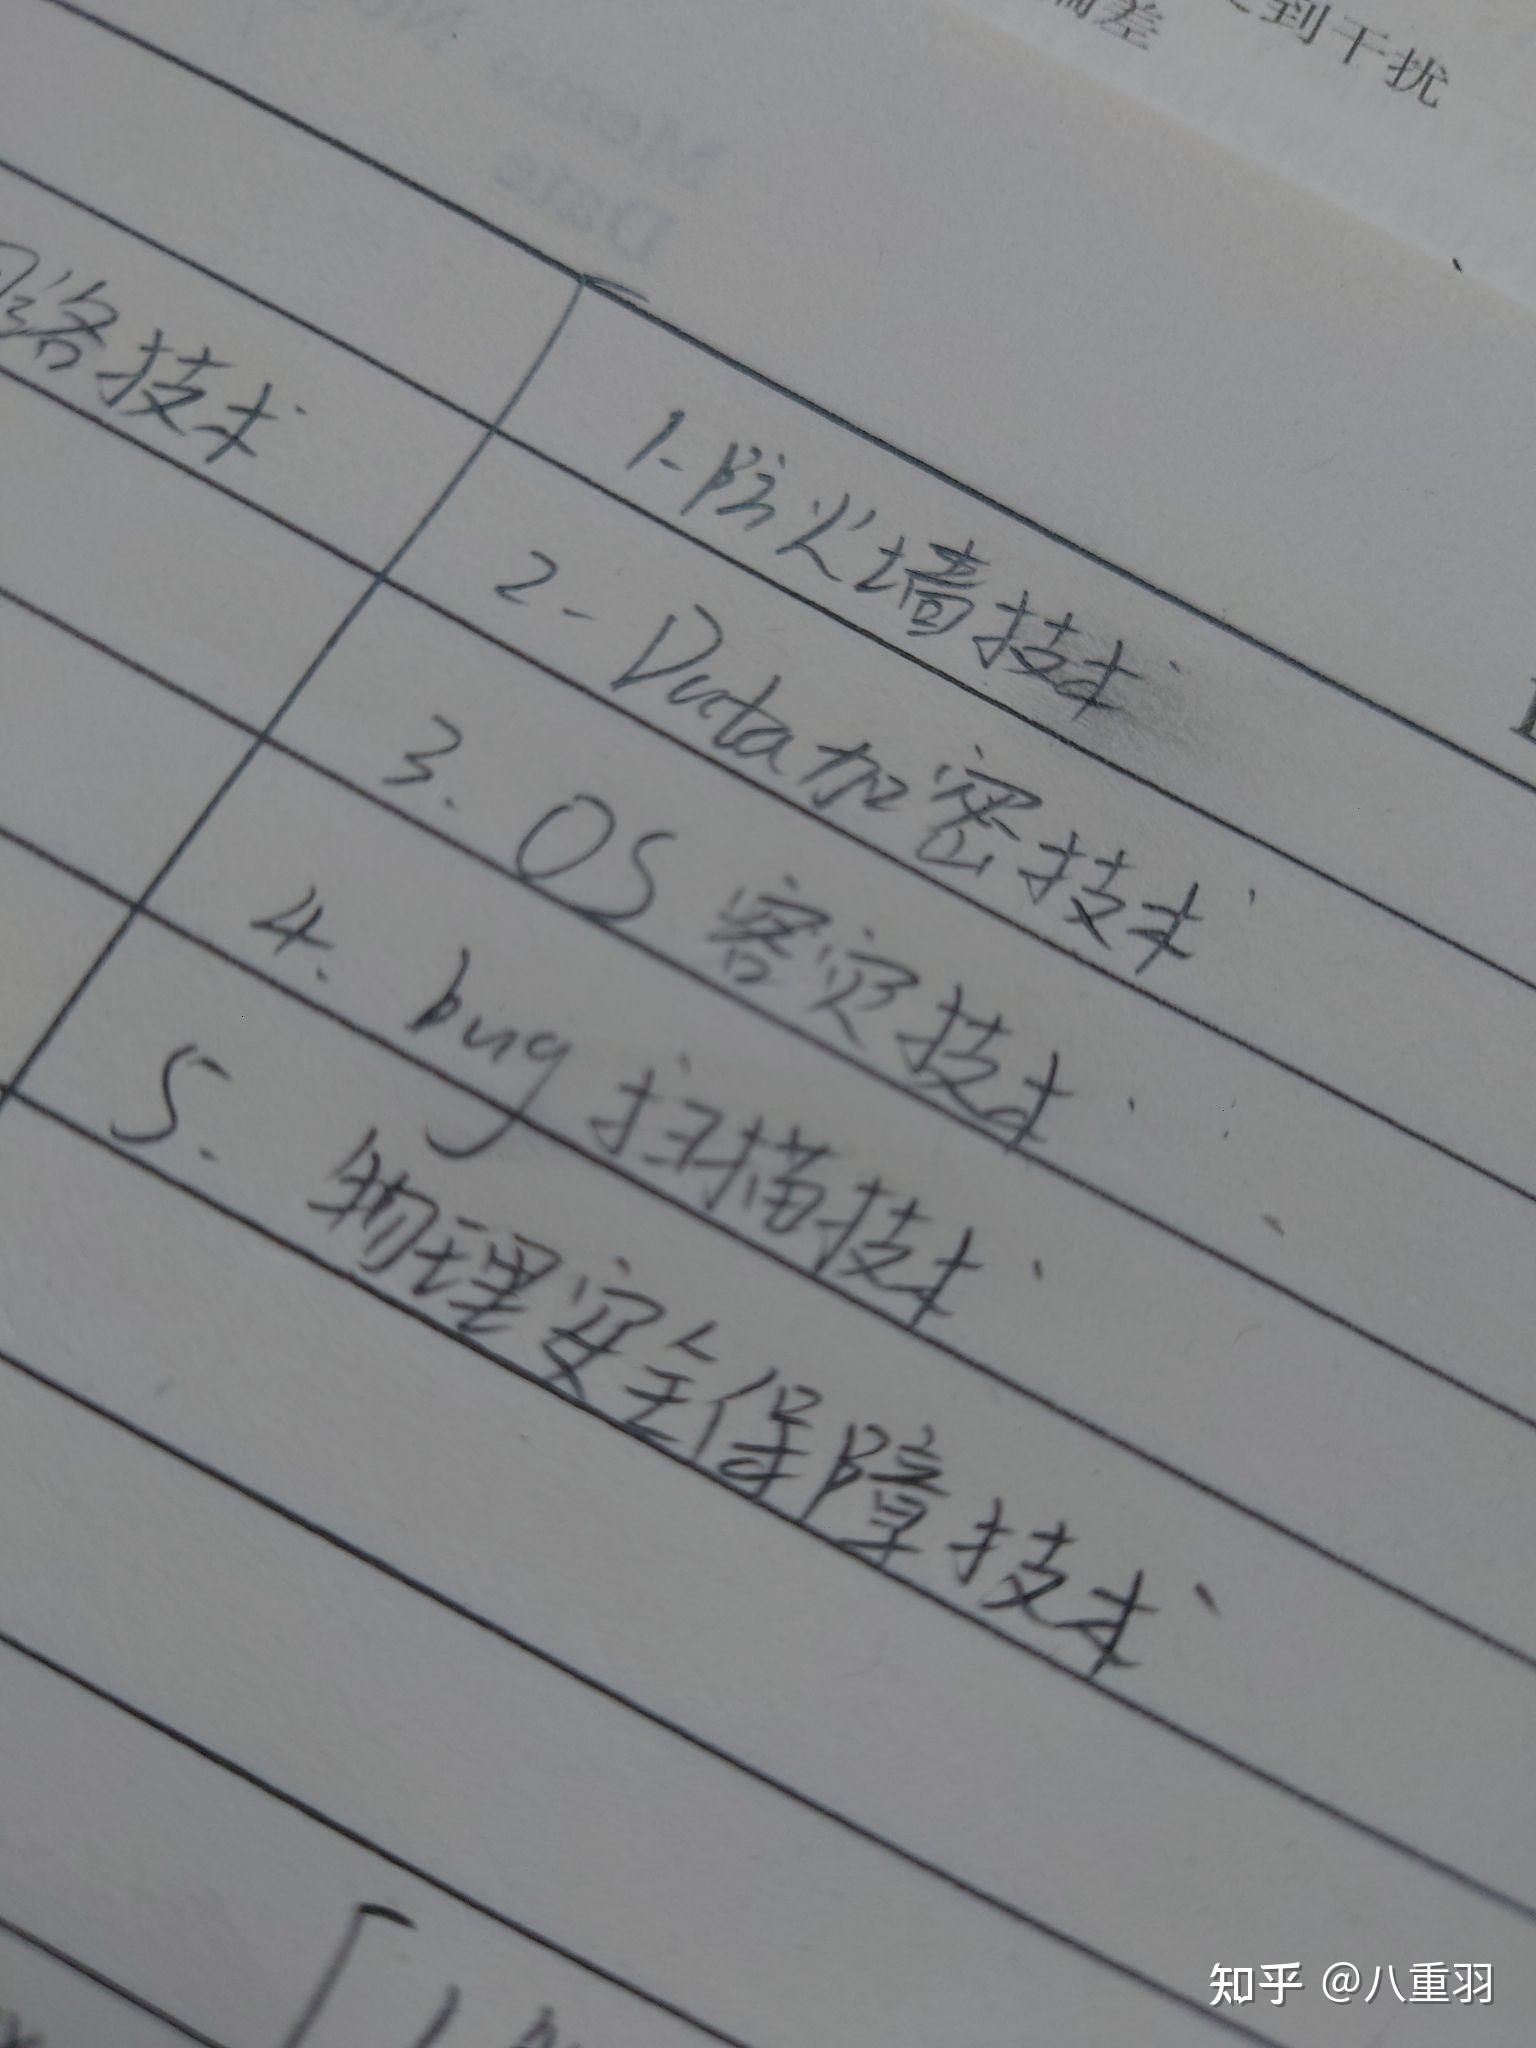 到干扰
偏差
Memo No.
Date
网络技术
1.防火墙技术
2.Data加密技术
3.OS容灾技术
4.bug扫描技术
5.物理安全保障技术
知乎 @八重羽